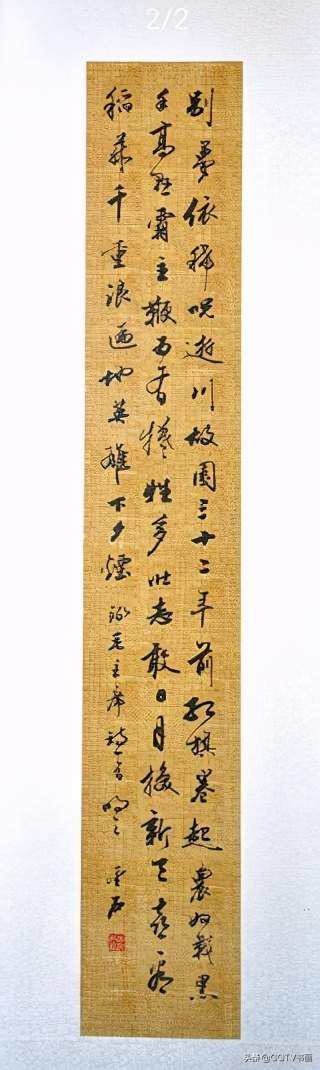 2/2
别夢依稀呪逝川故園三十二年前红旗卷起農奴戟黑
手高悬霸主鞭为有牺牲多壮志敢日月换新天喜看
稻菽千重浪遍地英雄下夕煙 錄毛主席詩一首
头条 书画